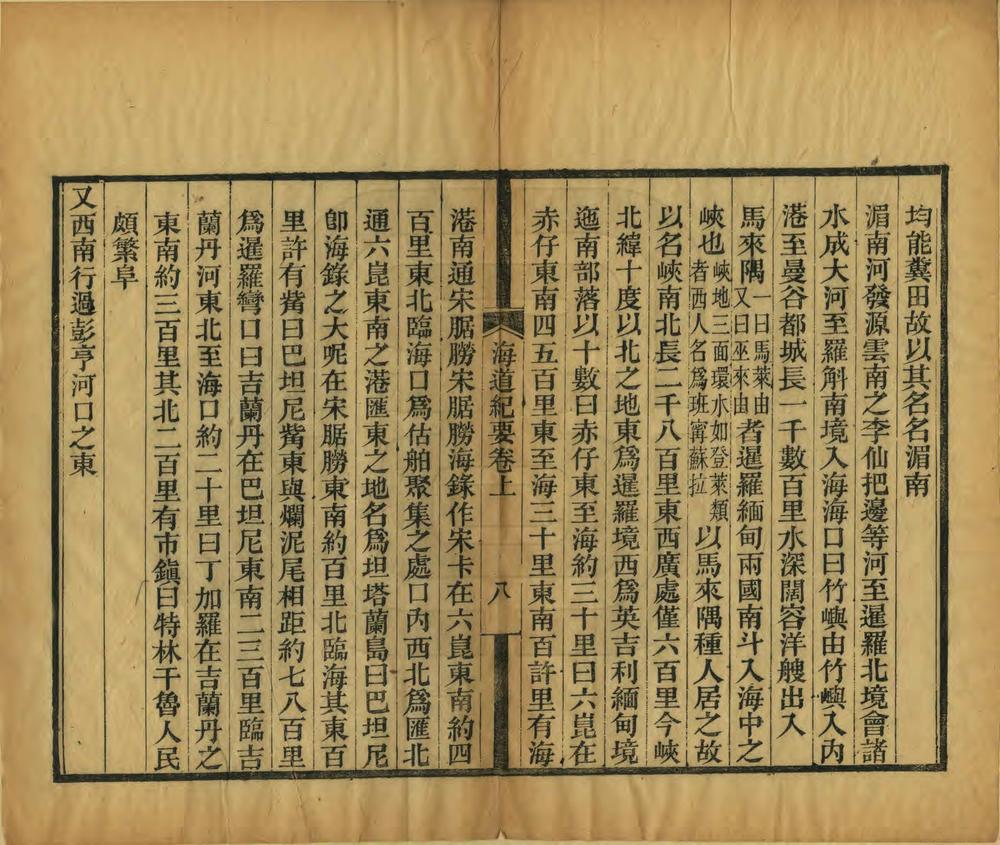 均能糞田故以其名名湄南
湄南河發源雲南之李仙把邊等河至暹羅北境會諸
水成大河至羅斛南境入海海口曰竹嶼由竹嶼入內
港至曼谷都城長一千數百里水深闊容洋艘出入
馬來隅一曰馬萊由又曰巫來由者暹羅緬甸兩國南斗入海中之
峽也峽地三面環水如登萊類者西人名爲班甯蘇拉以馬來隅種人居之故
以名峽南北長二千八百里東西廣處僅六百里今峽
北緯十度以北之地東爲暹羅境西爲英吉利緬甸境
迤南部落以十數曰赤仔東至海約三十里曰六崑在
赤仔東南四五百里東至海三十里東南百許里有海
海道紀要卷上 八
港南通宋腒朥宋腒朥海錄作宋卡在六崑東南約四
百里東北臨海口爲估舶聚集之處口內西北爲匯北
通六崑東南之港匯東之地名爲坦塔蘭島曰巴坦尼
卽海錄之大呢在宋腒朥東南約百里北臨海其東百
里許有觜曰巴坦尼觜東與爛泥尾相距約七八百里
爲暹羅彎口曰吉蘭丹在巴坦尼東南二三百里臨吉
蘭丹河東北至海口約二十里曰丁加羅在吉蘭丹之
東南約三百里其北二百里有市鎭曰特林干魯人民
頗繁阜
又西南行過彭亨河口之東